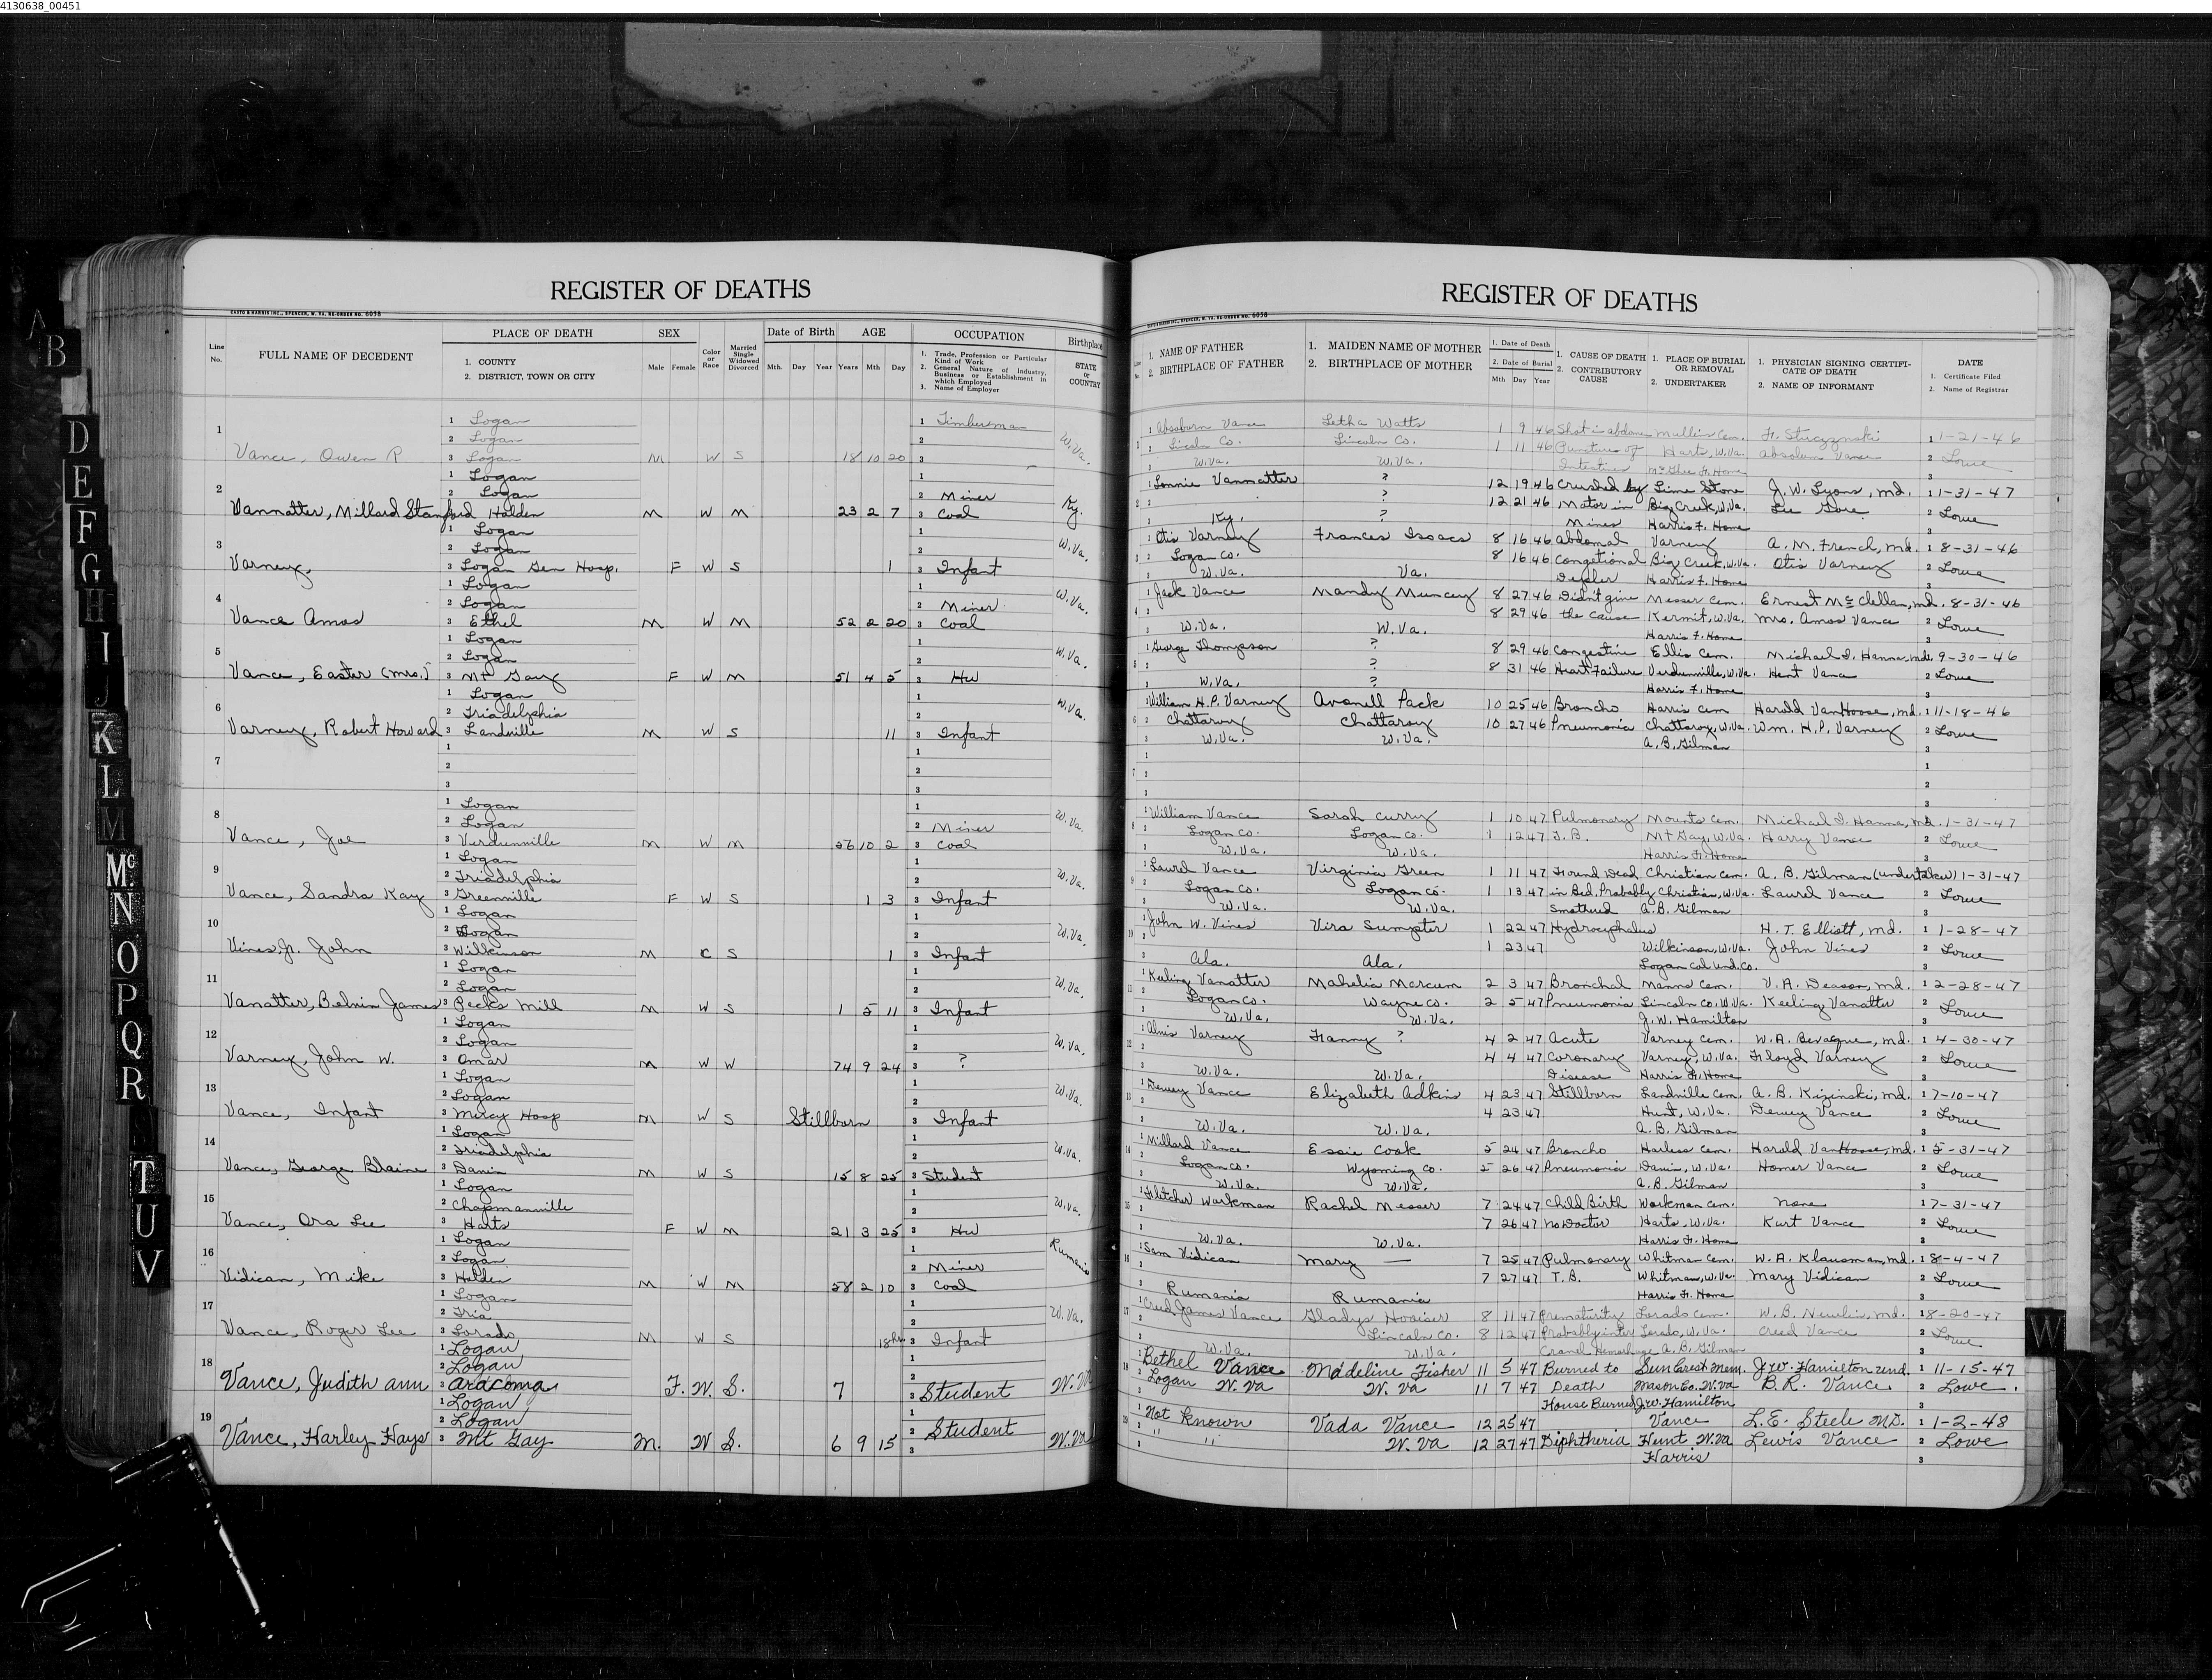 4130638_00451
REGISTER OF DEATHS
CASTO & HARRIS INC., SPENCER, W. VA. RE-ORDER NO. 6058
Line No. FULL NAME OF DECEDENT PLACE OF DEATH 1. COUNTY 2. DISTRICT, TOWN OR CITY SEX Male Female Color or Race Married Single Widowed Divorced Date of Birth Mth. Day Year AGE Years Mth Day OCCUPATION 1. Trade, Profession or Particular Kind of Work 2. General Nature of Industry, Business or Establishment in which Employed 3. Name of Employer Birthplace STATE or COUNTRY
1 Vance, Owen P 1 Logan 2 Logan 3 Logan M W S 18 10 20 1 Timberman 2 3 W.Va.
2 Vannatter, Millard Stanford 1 Logan 2 Logan 3 Holden M W M 23 2 7 1 2 Miner 3 Coal Ky.
3 Varney, 1 Logan 2 Logan 3 Logan Gen Hosp. F W S 1 1 2 3 Infant W.Va.
4 Vance Amos 1 Logan 2 Logan 3 Ethel M W M 52 2 20 1 2 Miner 3 Coal W.Va.
5 Vance, Easter (Mrs.) 1 Logan 2 Logan 3 Mt Gay F W M 51 4 5 1 2 3 HW W.Va.
6 Varney, Robert Howard 1 Logan 2 Triadelphia 3 Landville M W S 11 1 2 3 Infant W.Va.
7 1 2 3 1 2 3
8 Vance, Joe 1 Logan 2 Logan 3 Verdunville M W M 56 10 2 1 2 Miner 3 Coal W.Va.
9 Vance, Sandra Kay 1 Logan 2 Triadelphia 3 Greenville F W S 1 3 1 2 3 Infant W.Va.
10 Vines, Jr. John 1 Logan 2 Logan 3 Wilkinson M C S 1 1 2 3 Infant W.Va.
11 Vanatter, Belvin James 1 Logan 2 Logan 3 Pecks Mill M W S 1 5 11 1 2 3 Infant W.Va.
12 Varney, John W. 1 Logan 2 Logan 3 Omar M W W 74 9 24 1 2 3 ? W.Va.
13 Vance, Infant 1 Logan 2 Logan 3 Mercy Hosp M W S Stillborn 1 2 3 Infant W.Va.
14 Vance, George Blaine 1 Logan 2 Triadelphia 3 Davin M W S 15 8 25 1 2 3 Student W.Va.
15 Vance, Ora Lee 1 Logan 2 Chapmanville 3 Harts F W M 21 3 25 1 2 3 HW W.Va.
16 Vidican, Mike 1 Logan 2 Logan 3 Holden M W M 58 2 10 1 2 Miner 3 Coal Rumania
17 Vance, Roger Lee 1 Logan 2 Tria 3 Lorado M W S 18hr 1 2 3 Infant W.Va.
18 Vance, Judith Ann 1 Logan 2 Logan 3 Aracoma F. W. S. 7 1 2 3 Student W.Va
19 Vance, Harley Hays 1 Logan 2 Logan 3 Mt Gay M. W S. 6 9 15 1 2 Student 3 W.Va
REGISTER OF DEATHS
CASTO & HARRIS INC., SPENCER, W. VA. RE-ORDER NO. 6058
Line No. 1. NAME OF FATHER 2. BIRTHPLACE OF FATHER 1. MAIDEN NAME OF MOTHER 2. BIRTHPLACE OF MOTHER 1. Date of Death 2. Date of Burial Mth Day Year 1. CAUSE OF DEATH 2. CONTRIBUTORY CAUSE 1. PLACE OF BURIAL OR REMOVAL 2. UNDERTAKER 1. PHYSICIAN SIGNING CERTIFICATE OF DEATH 2. NAME OF INFORMANT DATE 1. Certificate Filed 2. Name of Registrar
1 Absoburn Vance Letha Watts 1 9 46 Shot in abdomen Mullins Cem. 1 1-21-46
Lincoln Co. Lincoln Co. 1 11 46 Puncture of Harts, W.Va. Absolum Vance 2 Lowe
W.Va. W.Va. Intestines McGhee F. Home 3
2 Lonnie Vannatter ? 12 19 46 Crushed by Lime Stone J. W. Lyons, Md. 1 1-31-47
? 12 21 46 Motor in Big Creek, W.Va. Lee Gore 2 Lowe
Ky. ? Mines Harris F. Home 3
3 Otis Varney Frances Isaacs 8 16 46 Abdomal Varney A. M. French, Md. 1 8-31-46
Logan Co. 8 16 46 Congetional Big Creek, W.Va. Otis Varney 2 Lowe
W.Va. Va. Harris F. Home 3
4 Jack Vance Mandy Muncey 8 27 46 Didn't give Messer Cem. Ernest McClellan, Md. 8-31-46
8 29 46 the cause Kermit, W.Va. Mrs. Amos Vance 2 Lowe
W.Va. W.Va. Harris F. Home 3
5 George Thompson ? 8 29 46 Congestive Ellis Cem. Michael I. Hanna, Md. 9-30-46
? 8 31 46 Heart Failure Verdunville, W.Va. Hent Vance 2 Lowe
W.Va. ? Harris F. Home 3
6 William H.P. Varney Avonell Pack 10 25 46 Broncho Harris Cem Harold VanHoose, Md. 1 11-18-46
Chattaroy Chattaroy 10 27 46 Pneumonia Chattaroy, W.Va. Wm. H.P. Varney 2 Lowe
W.Va. W.Va. A. B. Gilman 3
7 1 2 3
8 William Vance Sarah Curry 1 10 47 Pulmonary Mounts Cem. Michael I. Hanna, Md. 1-31-47
Logan Co. Logan Co. 1 12 47 T.B. Mt Gay, W.Va. Harry Vance 2 Lowe
W.Va. W.Va. Harris F. Home 3
9 Laurel Vance Virginia Green 1 11 47 Found Dead Christian Cem. A. B. Gilman (undertaker) 1-31-47
Logan Co. Logan Co. 1 13 47 in Bed, Probably Christian, W.Va. Laurel Vance 2 Lowe
W.Va. W.Va. Smothered A.B. Gilman 3
10 John W. Vines Vira Sumpter 1 22 47 Hydrocephalus H. T. Elliott, Md. 1 1-28-47
1 23 47 Wilkinson, W.Va. John Vines 2 Lowe
Ala. Ala. Logan Col. Und. Co. 3
11 Keeling Vanatter Mahelia Marcum 2 3 47 Bronchal Manns Cem. V. A. Deason, Md. 1 2-28-47
Logan Co. Wayne Co. 2 5 47 Pneumonia Lincoln Co, W.Va. Keeling Vanatter 2 Lowe
W.Va. W.Va. J. W. Hamilton 3
12 Alvis Varney Fanny ? 4 2 47 Acute Varney Cem. W. A. Bevacque, Md. 1 4-30-47
4 4 47 Coronary Varney, W.Va. Floyd Varney 2 Lowe
W.Va. W.Va. Disease Harris F. Home 3
13 Dewey Vance Elizabeth Adkins 4 23 47 Stillborn Landville Cem. A. B. Kizinski, Md. 1 7-10-47
4 23 47 Hunt, W.Va. Dewey Vance 2 Lowe
W.Va. W.Va. A. B. Gilman 3
14 Millard Vance Essie Cook 5 24 47 Broncho Harless Cem. Harold VanHoose, Md. 1 5-31-47
Logan Co. Wyoming Co. 5 26 47 Pneumonia Davin, W.Va. Homer Vance 2 Lowe
W.Va. W.Va. A. B. Gilman 3
15 Fletcher Workman Rachel Messer 7 24 47 Child Birth Workman Cem. None 1 7-31-47
7 26 47 No Doctor Harts, W.Va. Kurt Vance 2 Lowe
W.Va. W.Va. Harris F. Home 3
16 Sam Vidican Mary — 7 25 47 Pulmonary Whitman Cem. W. A. Klausman, Md. 1 8-4-47
7 27 47 T.B. Whitman, W.Va. Mary Vidican 2 Lowe
Rumania Rumania Harris F. Home 3
17 Creed James Vance Gladys Hoosier 8 11 47 Prematurity Lorado Cem. W. B. Newlin, Md. 1 8-20-47
Lincoln Co. 8 12 47 Probably inter Lorado, W.Va. Creed Vance 2 Lowe
W.Va. W.Va. Cranal Hemorhage A. B. Gilman 3
18 Bethel Vance Madeline Fisher 11 5 47 Burned to Sun Crest Mem. J.W. Hamilton und. 1 11-15-47
Logan W. Va W. Va 11 7 47 Death Mason Co. W.Va B. R. Vance 2 Lowe
House Burned J.W. Hamilton 3
19 Not Known Vada Vance 12 25 47 Vance L. E. Steele M.D. 1 1-2-48
" " W. Va 12 27 47 Diphtheria Hunt W.Va Lewis Vance 2 Lowe
Harris 3
A
B
D
E
F
G
H
I
J
K
L
M
Mc
N
O
P
Q
R
S
T
U
V
W